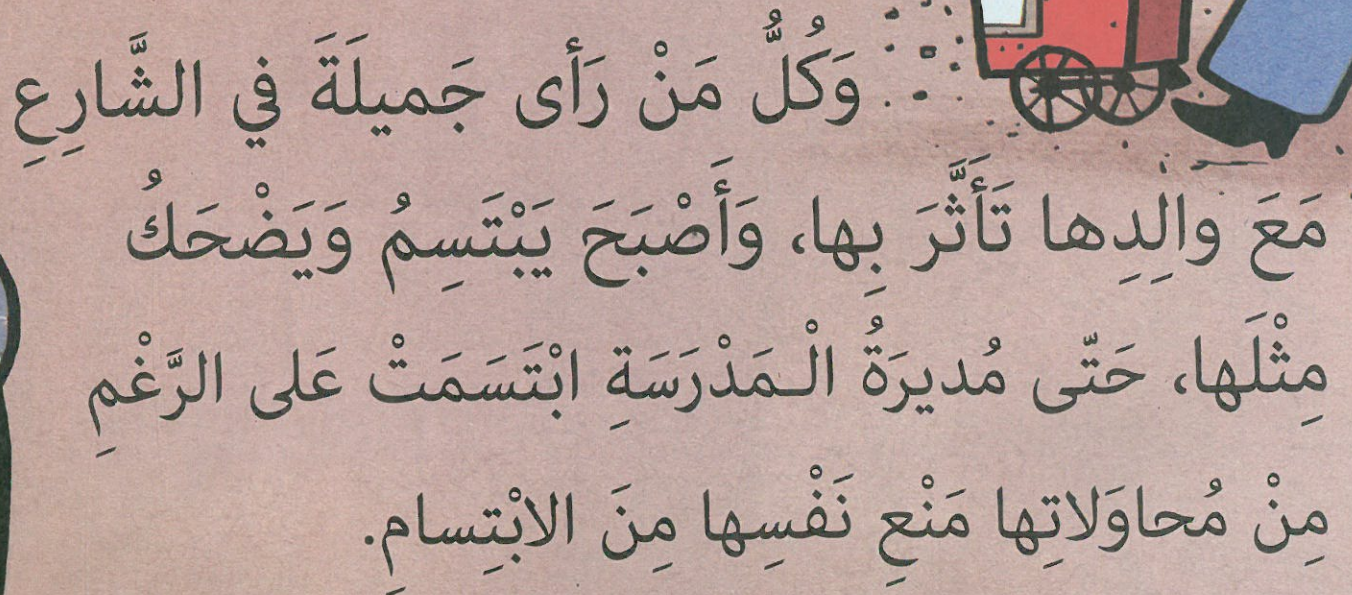 وَكُلُّ مَنْ رَأى جَميلَةَ في الشَّارِعِ
مَعَ والِدِها تَأَثَّرَ بِها، وَأَصْبَحَ يَبْتَسِمُ وَيَضْحَكُ
مِثْلَها، حَتّى مُديرَةُ الْـمَدْرَسَةِ ابْتَسَمَتْ عَلى الرَّغْمِ
مِنْ مُحاوَلاتِها مَنْعِ نَفْسِها مِنَ الابْتِسامِ.